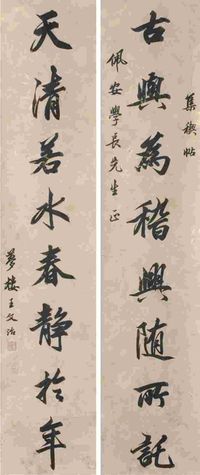 集禊帖
古與為稽興随所託
佩安學長先生正
天清若水春静於年
夢樓王文治